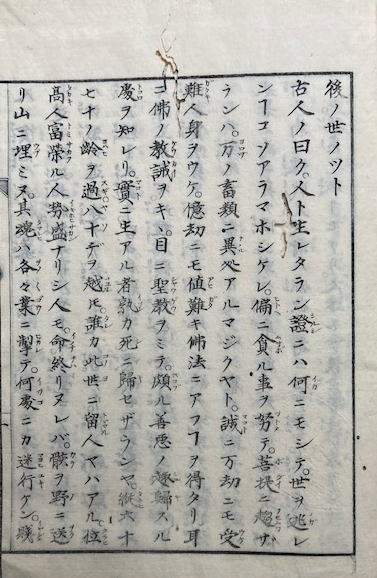 後ノ世ノツト
古人ノ曰ク。人ト生レタラン證ニハ何ニモシテ。世ヲ逃レ
ンヿコソアラマホシケレ。偏ニ貪ル事ヲ努テ。菩提ニ趣ザ
ランハ。万ノ畜類ニ異処アルマジクヤト。誠ニ万劫ニモ受
難人身ヲウケ。億劫ニモ値難キ佛法ニアフヿヲ得タリ耳
ニ佛ノ教誡ヲキヽ。目ニ聖教ヲミテ。頗ル善悪ノ歸スル
處ヲ知レリ。實ニ生アル者孰カ死ニ歸セザランヤ。縦六十
七十ノ齢ヲ過八十デヲ越モ。誰カ此世ニ留人マハアル。位
高人富榮ル人勢盛アリシ人モ。命終リヌレバ。骸ヲ野ニ送
リ山ニ埋ミヌ。其魂ハ各々業ニ掣テ。何處ニカ迷行ケン。賤